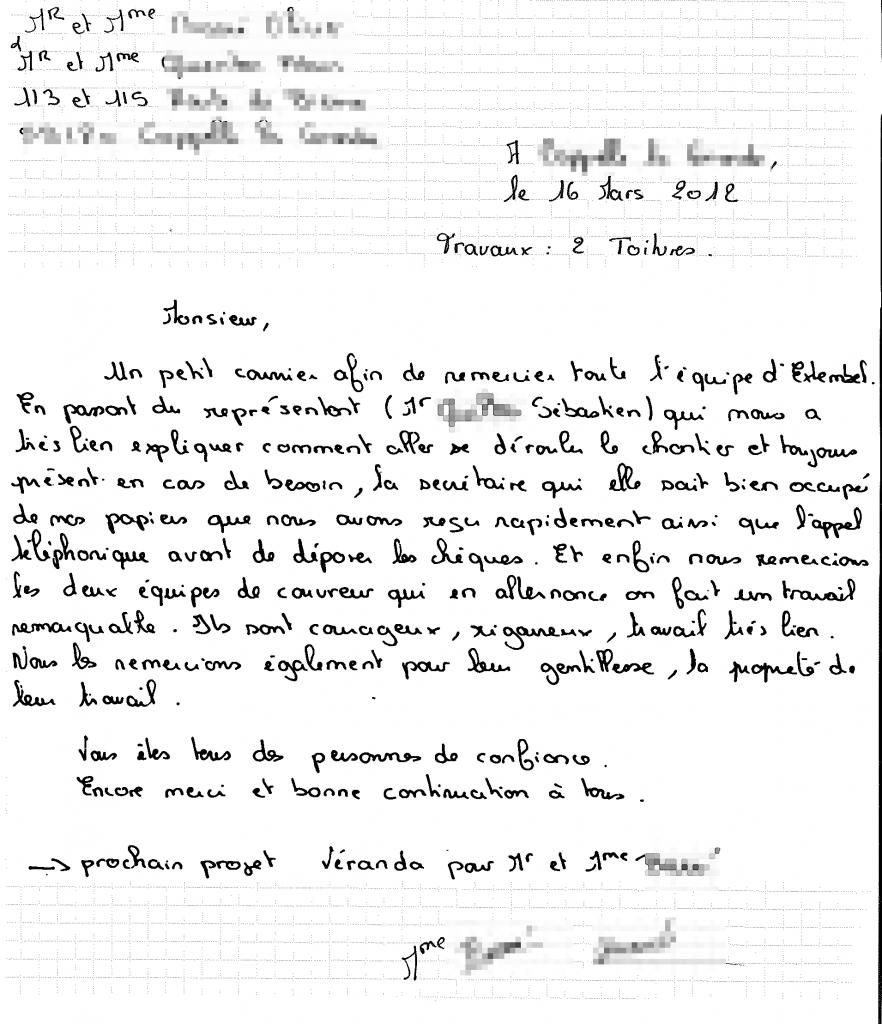 MR et Mme
et MR et Mme
113 et 115
A
le 16 Mars 2012
Travaux : 2 Toitures.
Monsieur,
Un petit courrier afin de remercier toute l'équipe d'Extembel.
En passant du représentant (Mr Sébastien) qui nous a
très bien expliquer comment aller se dérouler le chantier et toujours
présent en cas de besoin, la secrétaire qui elle sait bien occupé
de nos papiers que nous avons reçu rapidement ainsi que l'appel
téléphonique avant de déposer les chèques. Et enfin nous remercions
les deux équipes de couvreur qui en alternance on fait un travail
remarquable. Ils sont courageux, rigoureux, travail très bien.
Nous les remercions également pour leur gentillesse, la propreté de
leur travail.
Vous êtes tous des personnes de confiance.
Encore merci et bonne continuation à tous.
→ prochain projet Véranda pour Mr et Mme
Mme